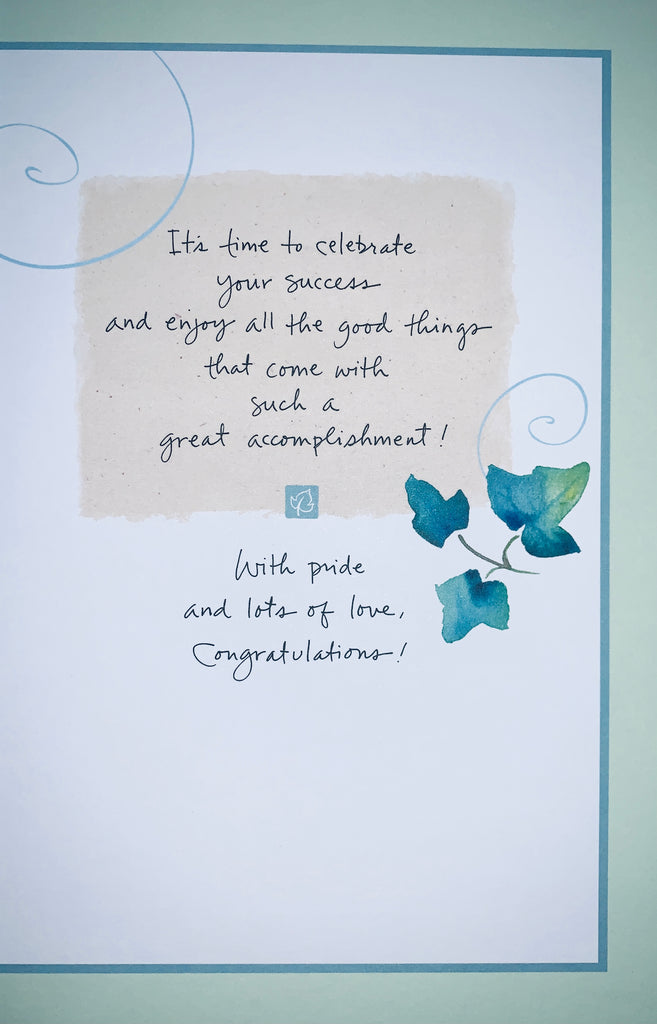 It's time to celebrate
your success
and enjoy all the good things
that come with
such a
great accomplishment!
With pride
and lots of love,
Congratulations!